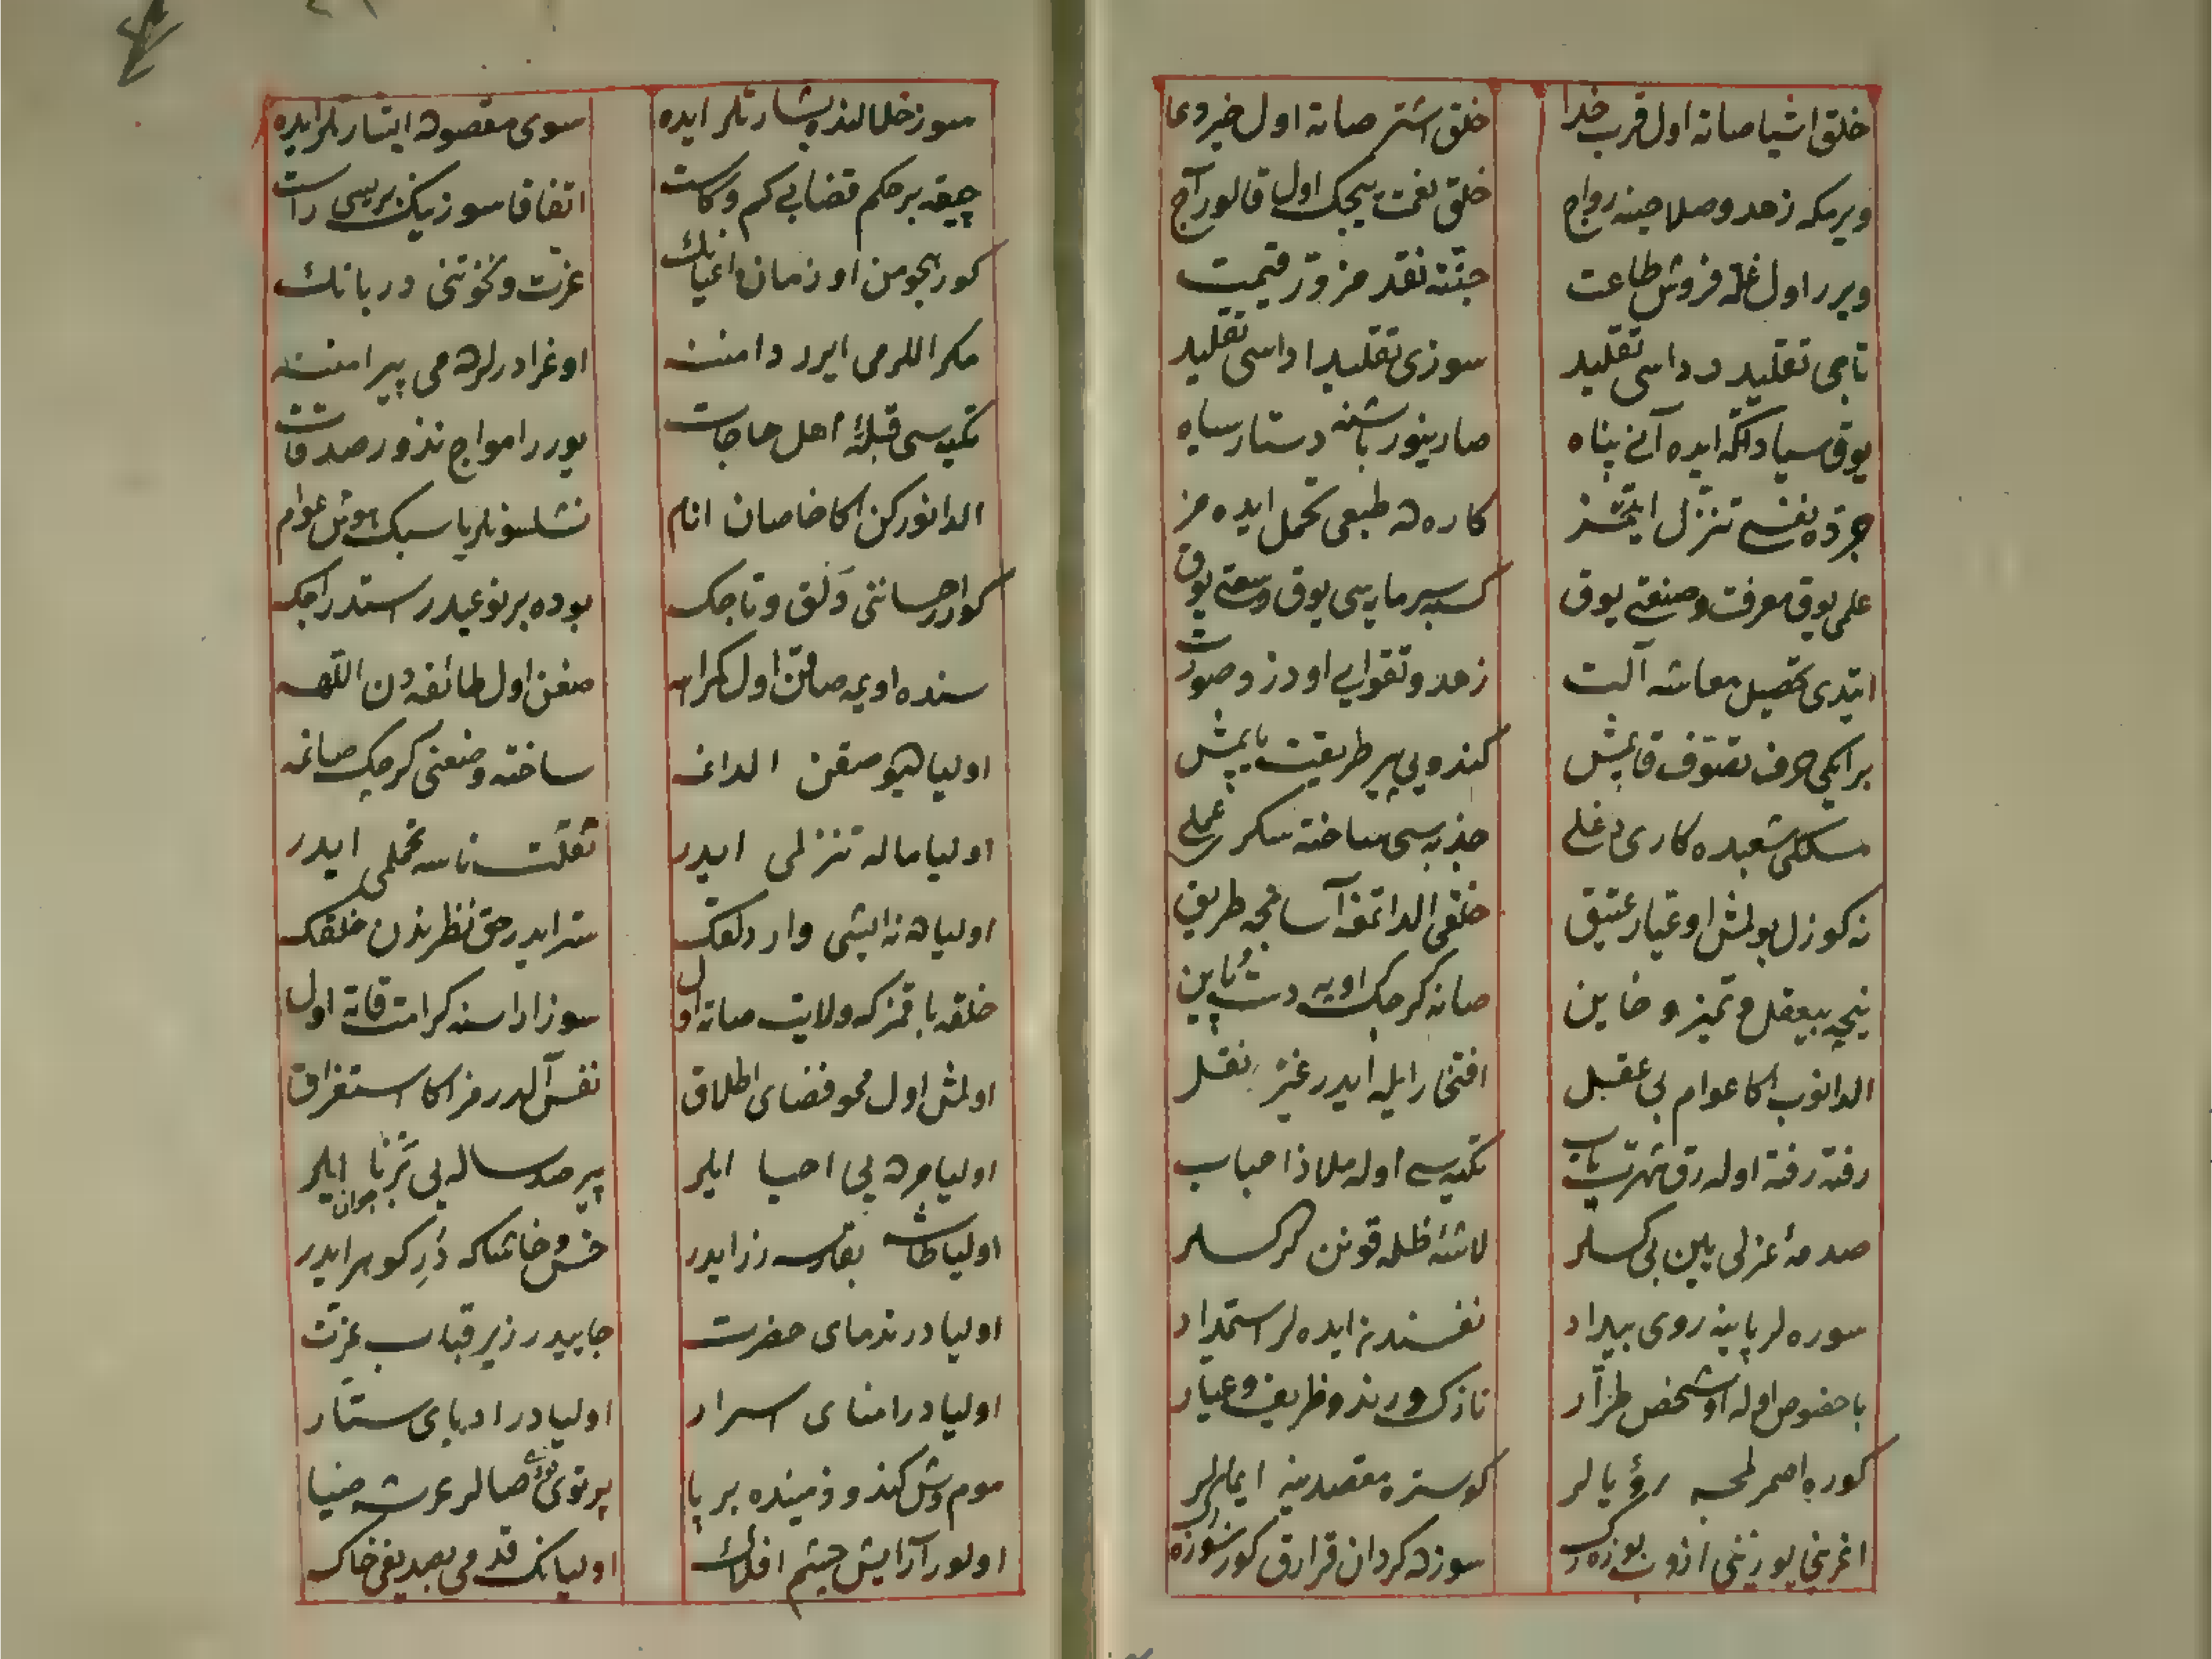 خلق اشیا صانه اول قرب خدا
خلق اشتر صانه اول خیر وعا
ویرمکه زهد و صلاحینه رواج
خلق نعمت ییجک اول قالور آج
ویرر اول غله فروش طاعت
جنته نقد مزور قیمت
تاجی تقلید ردداسی تقلید
سوزی تقلید اداسی تقلید
یوق سیادتکه ایده آنی پناه
صارینور باشنه دستار سیاه
نفسی تنزل ایتمز
کارده طبعی تحمل ایده مز
علمی یوق معرفت و صنعتی یوق
کسبه سرمایه سی یوق وسعتی یوق
ایتدی تحصیل معاشه آلت
زهد و تقوایی اودز و صورت
بر ایکی حرف تصوف قاپمش
کندویی پیر طریقت یاپمش
مسلکی شعبده کاری دغلی
جذبه سی ساخته سکر عملی
نه کوزل بولمش او عیار عتیق
خلقی الداتمغه آسانجه طریق
نیجه بیعقل و تمیز و خاین
صانه کرجک اویه
الدانوب اکا عوام بی عقل
افتخار ایله ایدر نقل
رفته رفته اوله رق شهرتیاب
تکیه سی اوله ملاذ احباب
صدمۀ عزلی یلین بی کسلر
لاشۀ ظلمه قونن کرکسلر
سوره لر پاینه روی بیداد
نفسندن ایده لر استمداد
باخصوص اوله او شخص طرار
نازک و رند و ظریف و عیار
کوره اصمرلمجه رؤیالر
کوستره مقصدینه ایمالر
اغزینی یوزینی
سوزده کردان قرارق
سوز خلالنده بشارتلر ایده
سوی مقصوده اشارتلر ایده
چیقه بر حکم قضا بی کم و کاست
اتفاقا سوزینک بریسی راست
کور هجومن او زمان اعیانک
عزت و نخوتنی دربانک
مکر اللرمی ایرر دامننه
اوغرادرلرمی پیرامننه
تکیه سی قبلۀ اهل حاجات
یورر امواج نذور صدقات
الدانورکن اکا خاصان انام
نشلسونلر یا سبک هوش عوام
کور احسانی دلق و تاجک
بوده بر نوعیدر استدراجک
سنده اویمه صاقن اول کمراهه
صغن اول طائفه دن اللهه
اولیا هپو صقن الدانمه
ساخته وضعنی کرجک صانمه
اولیا ماله تنزلمی ایدر
ثقلت ناسه تحملمی ایدر
اولیاده نه ایشی وار دلقک
ستر ایدر حق نظرندن خلقک
خلقه باقمز که ولایت صاته اول
سوز اراسنه کرامت قاته اول
اولمش اول محو فضای اطلاق
نفس آلدرمز اکا استغراق
اولیا مرده یی احیا ایلر
پیر صدساله یی برنا ایلر
جوان
اولیا طاشه بقارسه زر ایدر
خس و خاشاکه در کوهر ایدر
اولیادر ندمای حضرت
جاییدر زیر قباب عزت
اولیادر امنای اسرار
اولیادر ادبای ستار
موم وش کندو زمینده بر پا
پرتوی صالر عرشه ضیا
اولور آرایش چشم افلاک
اولیانک قدمی بصدیغی خاک